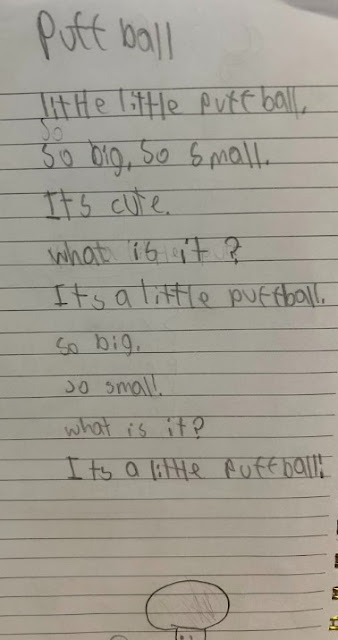 Puff ball
little little puff ball.
so
so big, so small.
Its cute.
what is it?
Its a little puffball.
so big.
so small.
what is it?
Its a little puffball!